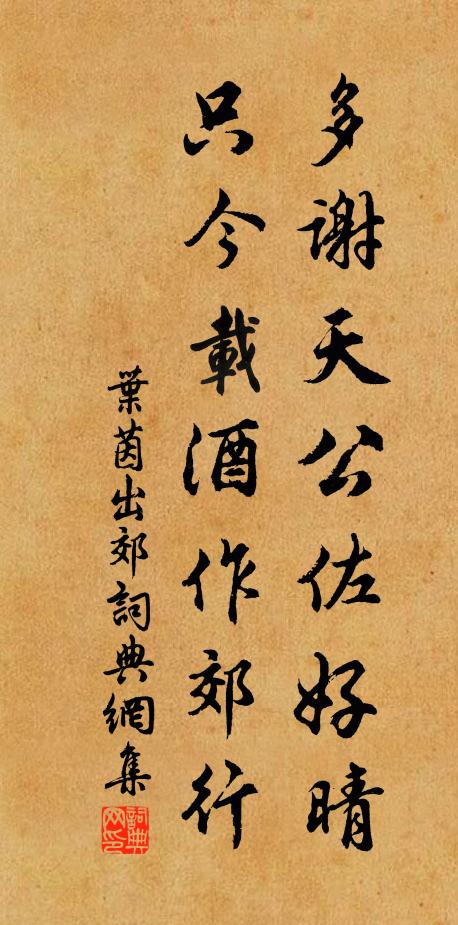 多谢天公佐好晴
只今載酒作郊行
葉茵出郊詞典網集
詞典网印